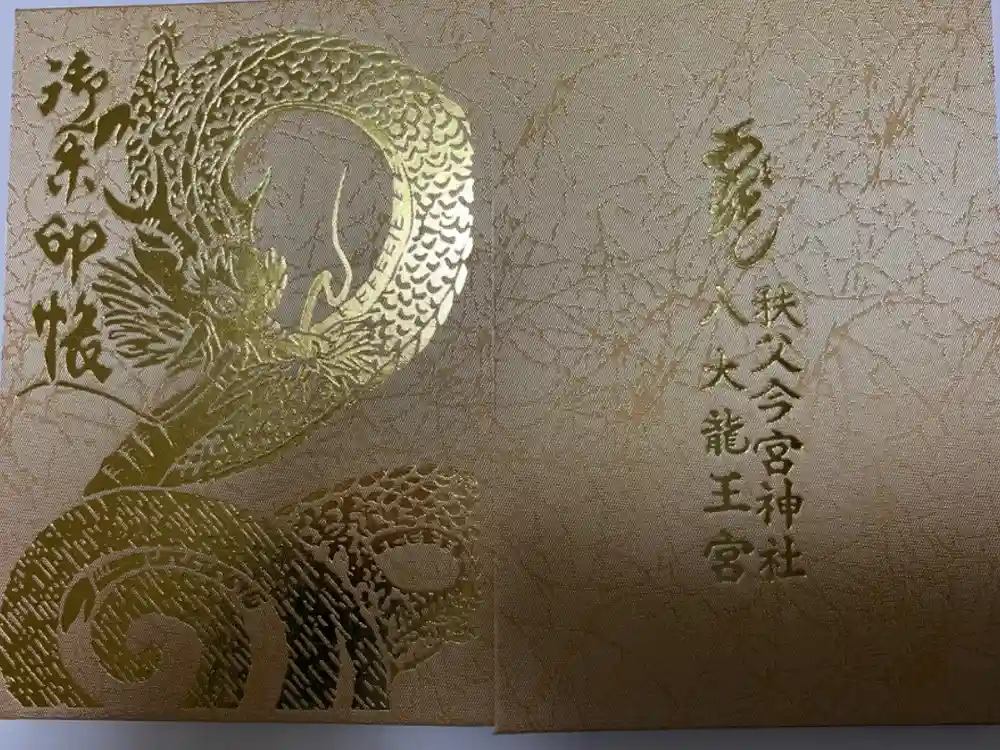 御朱印帳
龍
秩父今宮神社
八大龍王宮